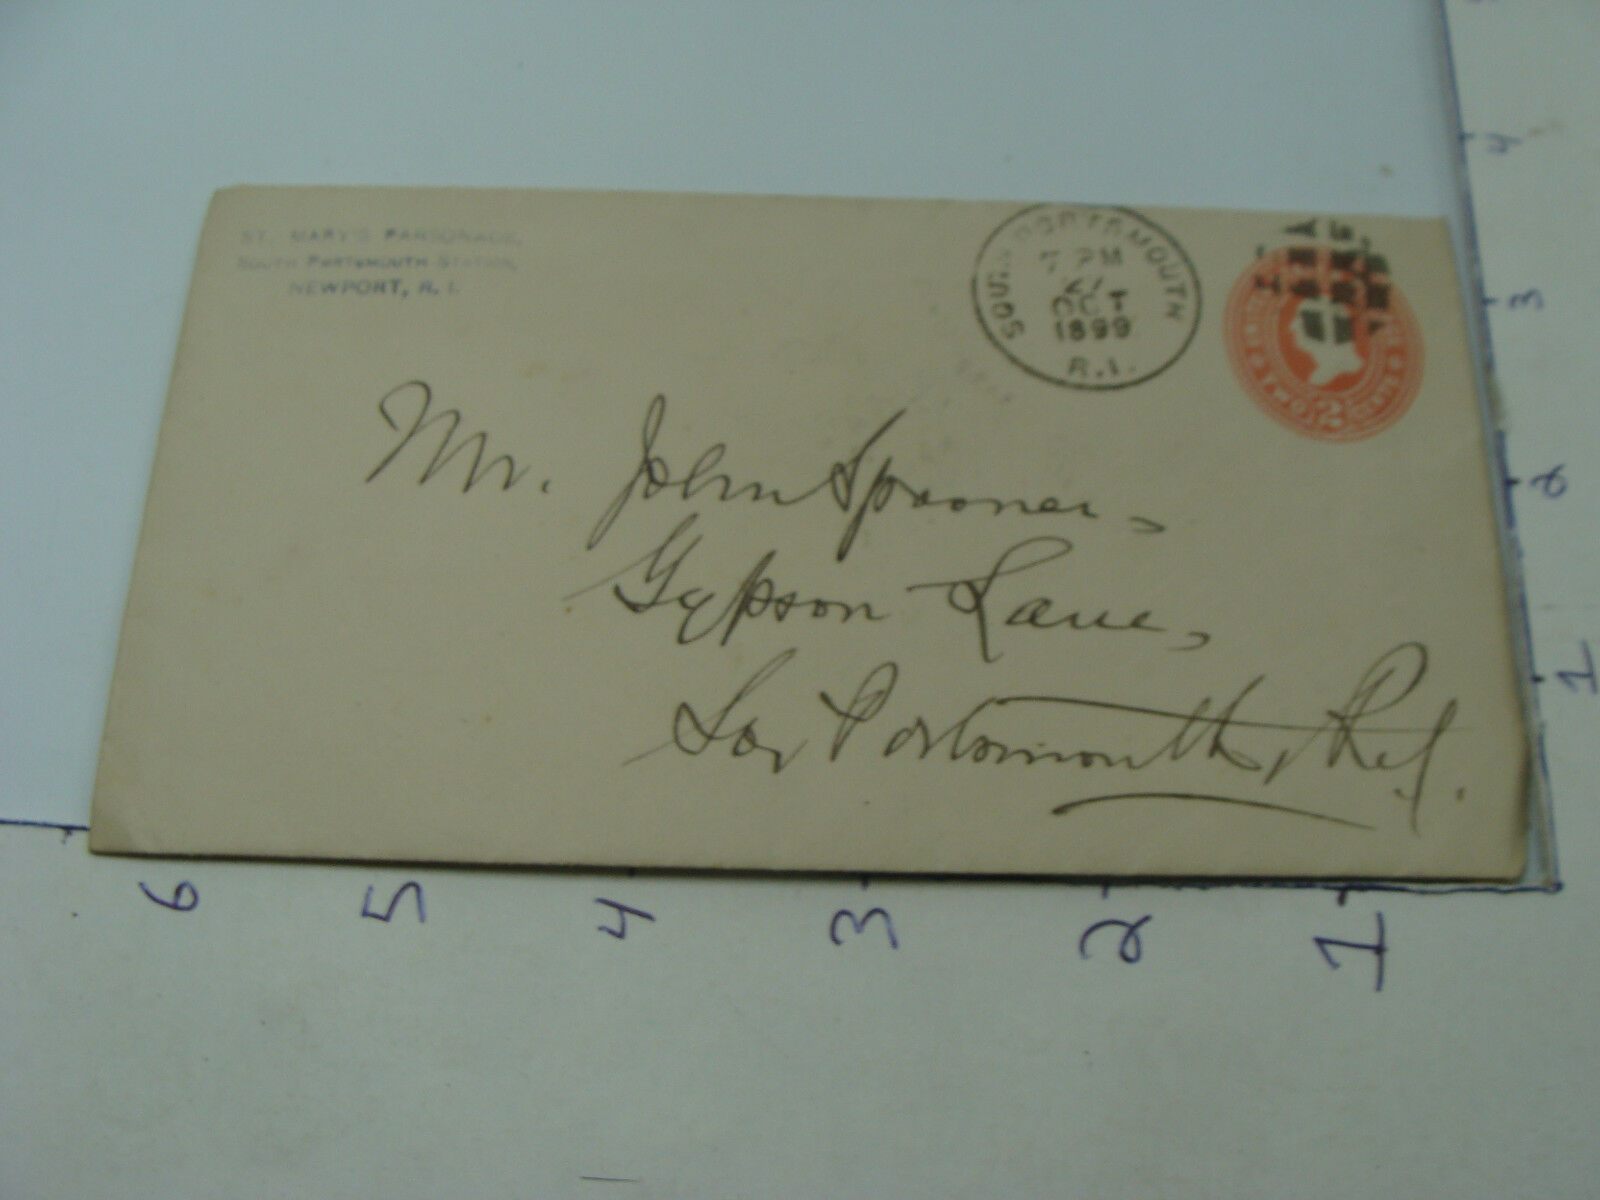 ST. MARY'S PARSONAGE,
SOUTH PORTSMOUTH STATION,
NEWPORT, R. I.
SOUTH PORTSMOUTH
7 PM
21
OCT
1899
R.I.
TWO 2 CENTS
Mr. John Spooner,
Gypson Lane,
So. Portsmouth, R.I.
6 5 4 3 2 1
4
3
2
1